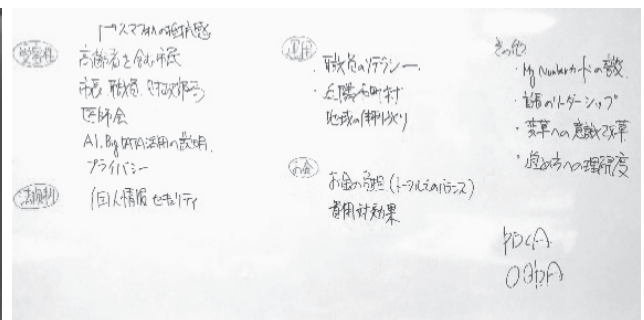 スマホへの抵抗感
受容性
高齢者を含む市民
市長 職員、財政課
医師会
AI, Big DATA活用の説明、
プライバシー
法規制
個人情報 セキュリティ
・職員のリテラシー
・近隣市町村
地域の体制づくり
お金
お金の負担 (トータルでのバランス)
費用対効果
その他
・My Numberカードの普及
・首長のリーダーシップ
・変革への意識改革
・進め方への理解度
PDCA
OODA